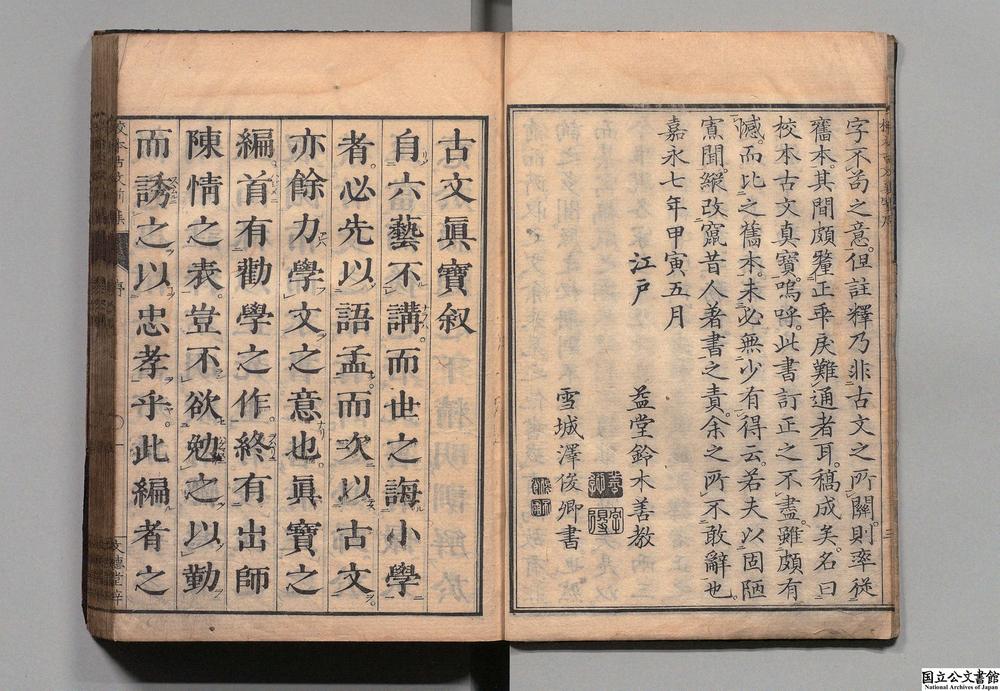 字不苟之意。但註釋乃非古文之所關。則率從
舊本。其間頗釐正乖戾難通者耳。稿成矣。名曰
校本古文真寶。嗚呼。此書訂正之不盡。雖頗有
憾。而比之舊本。未必無少有得云。若夫以固陋
寡聞。縱改竄昔人著書之責。余之所不敢辭也。
嘉永七年甲寅五月
江戶 益堂鈴木善教
雪城澤俊卿書
古文眞寶叙
自六藝不講。而世之誨小學
者。必先以語孟。而次以古文。
亦餘力學文之意也。眞寶之
編。首有勸學之作。終有出師
陳情之表。豈不欲勉之以勤
而誘之以忠孝乎。此編者之
国立公文書館
National Archives of Japan